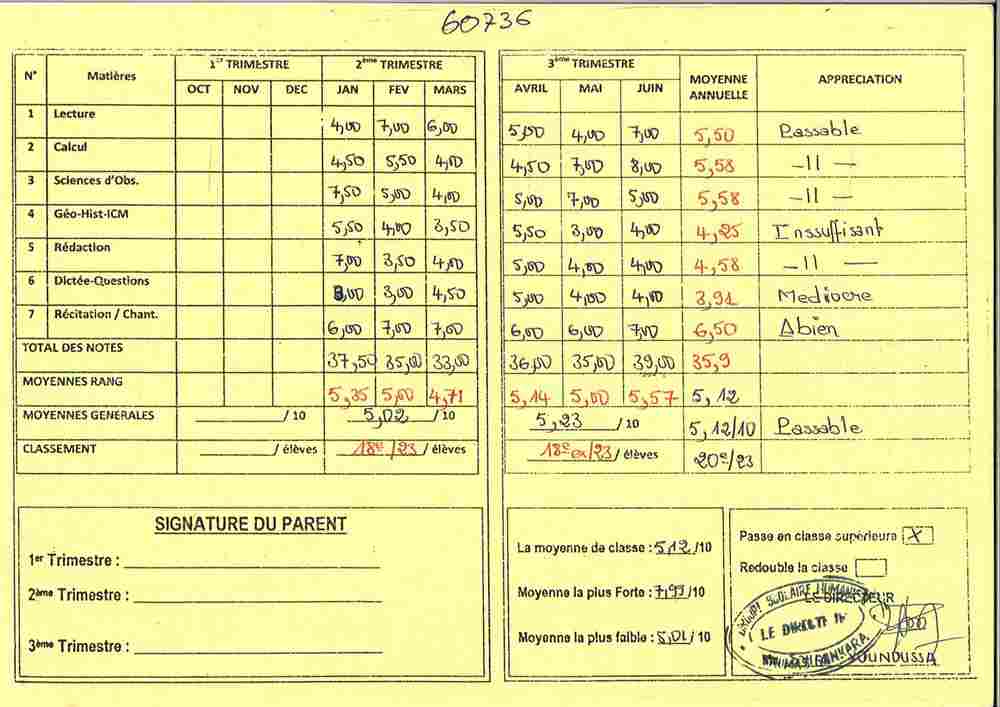 60736
N° Matières 1er TRIMESTRE 2ème TRIMESTRE 3ème TRIMESTRE MOYENNE ANNUELLE APPRECIATION
OCT NOV DEC JAN FEV MARS AVRIL MAI JUIN
1 Lecture 4,00 7,00 6,00 5,00 4,00 7,00 5,50 Passable
2 Calcul 4,50 5,50 4,00 4,50 7,00 8,00 5,58 -11 -
3 Sciences d'Obs. 7,50 5,00 4,00 5,00 7,00 5,00 5,58 -11 -
4 Géo-Hist-ICM 5,50 4,00 3,50 5,50 3,00 4,00 4,25 Inssuffisant
5 Rédaction 7,00 3,50 4,00 5,00 4,00 4,00 4,58 -11 -
6 Dictée-Questions 3,00 3,00 4,50 5,00 4,00 4,00 3,91 Mediocre
7 Récitation / Chant. 6,00 7,00 7,00 6,00 6,00 7,00 6,50 Abien
TOTAL DES NOTES 37,50 35,00 33,00 36,00 35,00 39,00 35,9
MOYENNES RANG 5,35 5,00 4,71 5,14 5,00 5,57 5,12
MOYENNES GENERALES /10 5,02 /10 5,23 /10 5,12/10 Passable
CLASSEMENT / élèves 18e/23 / élèves 18e ex/23 / élèves 20e/23
SIGNATURE DU PARENT
1er Trimestre :
2ème Trimestre :
3ème Trimestre :
La moyenne de classe : 5,12 /10
Moyenne la plus Forte : 7,99 /10
Moyenne la plus faible : 5,01 / 10
Passe en classe supérieure X
Redouble la classe
LE DIRECTEUR
SCOLAIRE HUMANIS
LE DIRECT
YOUNOUSSA